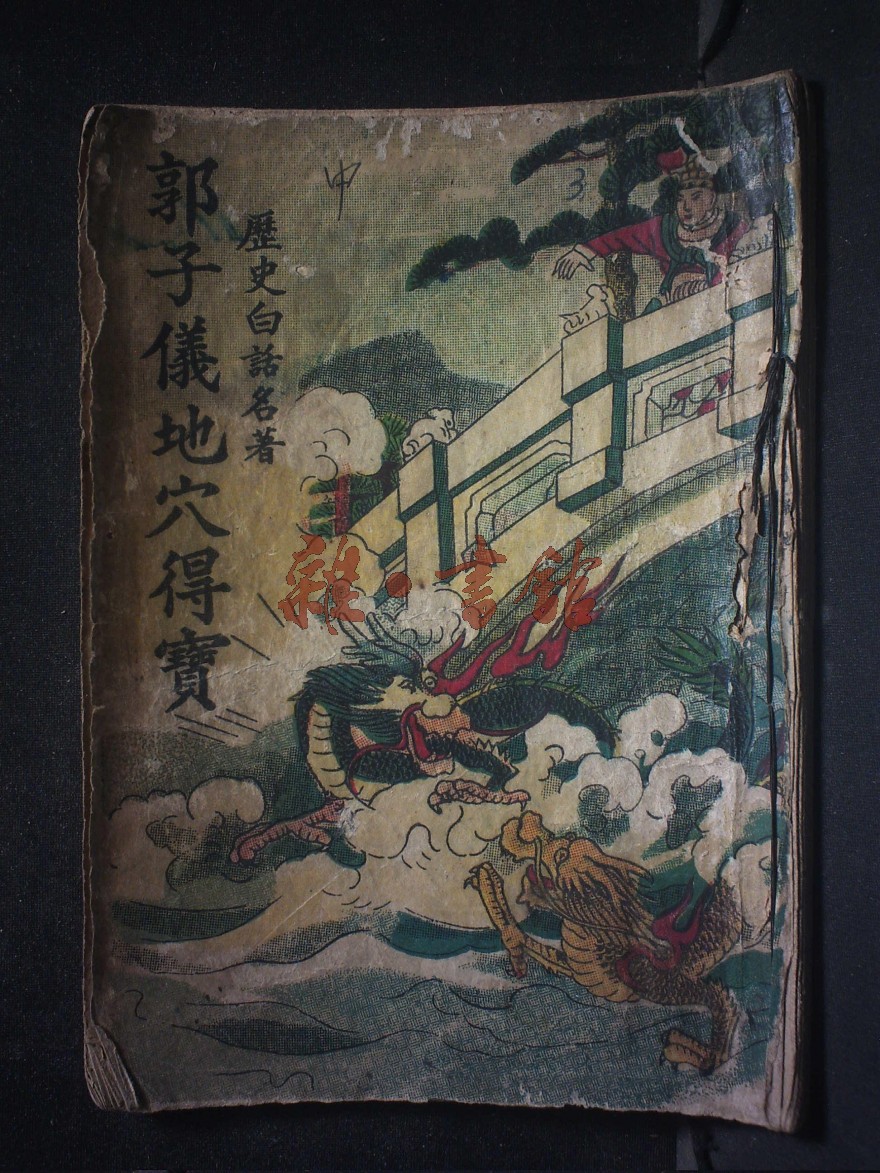 郭子儀地穴得寶
歷史白話名著
甲
3
雜·書館